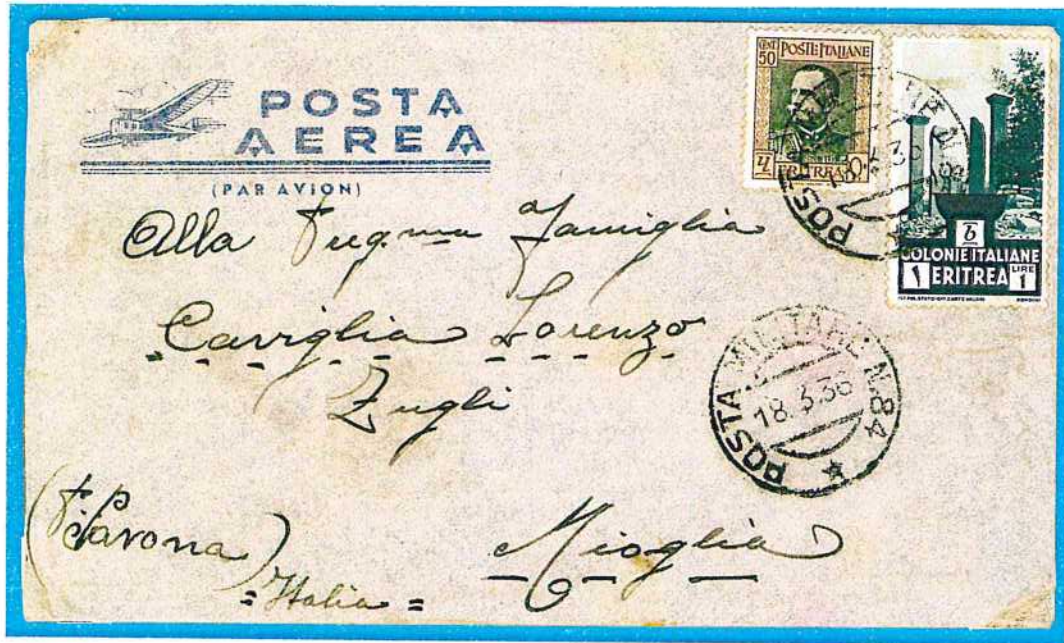 POSTA
AEREA
(PAR AVION)
CENT 50 POSTE ITALIANE
ERITREA
COLONIE ITALIANE
1 ERITREA LIRE 1
POSTA MILITARE N. 84
18.3.36
Alla Famiglia
Caviglia Lorenzo
Zugli
Mioglia
(Savona)
=Italia=